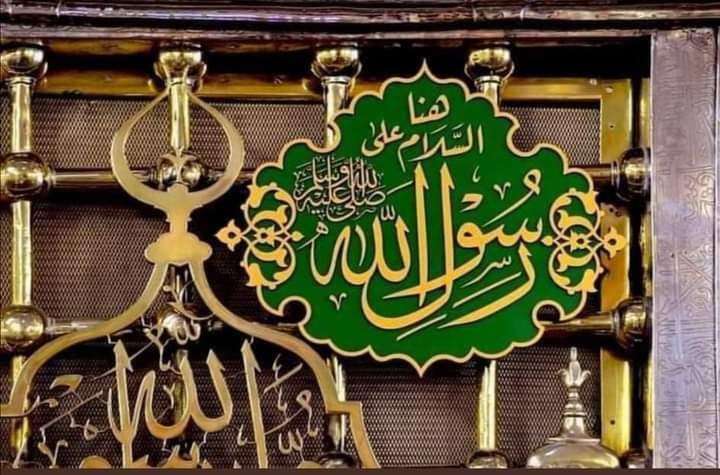 هنا
السَّلَام على
رَسُول اللّٰه
صلى الله عليه وسلم
الله